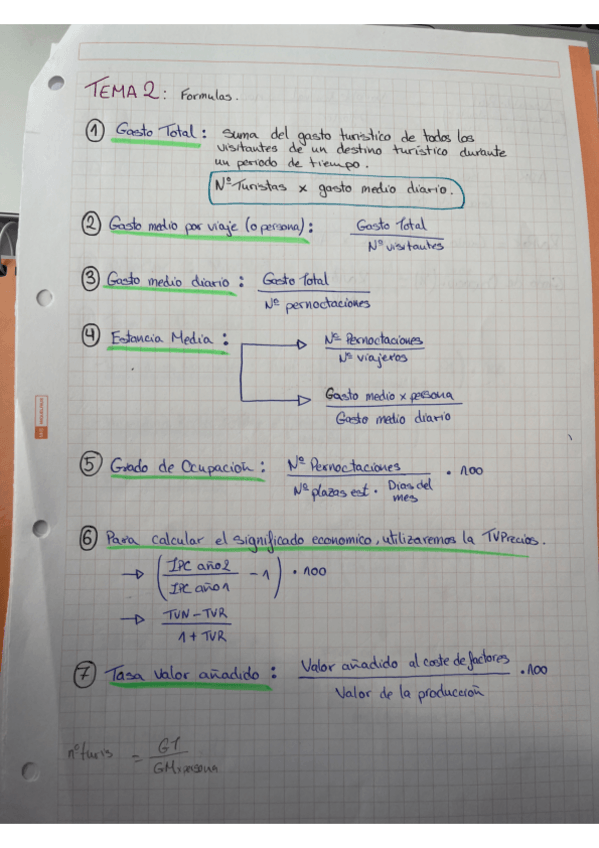 TEMA 2: Formulas.
① Gasto Total: suma del gasto turistico de todos los
visitantes de un destino turístico durante
un periodo de tiempo.
Nº Turistas x gasto medio diario.
② Gasto medio por viaje (o persona): Gasto Total
Nº visitantes
③ Gasto medio diario: Gasto Total
Nº pernoctaciones
④ Estancia Media: Nº Pernoctaciones
Nº viajeros
Gasto medio x persona
Gasto medio diario
⑤ Grado de Ocupación: Nº Pernoctaciones · 100
Nº plazas est. · Dias del
mes
⑥ Para calcular el significado economico, utilizaremos la TVPrecios.
→ (IPC año 2 - 1) · 100
IPC año 1
→ TVN - TVR
1 + TVR
⑦ Tasa Valor añadido: Valor añadido al coste de factores · 100
Valor de la producción
nº turis = GT
GMxpersona